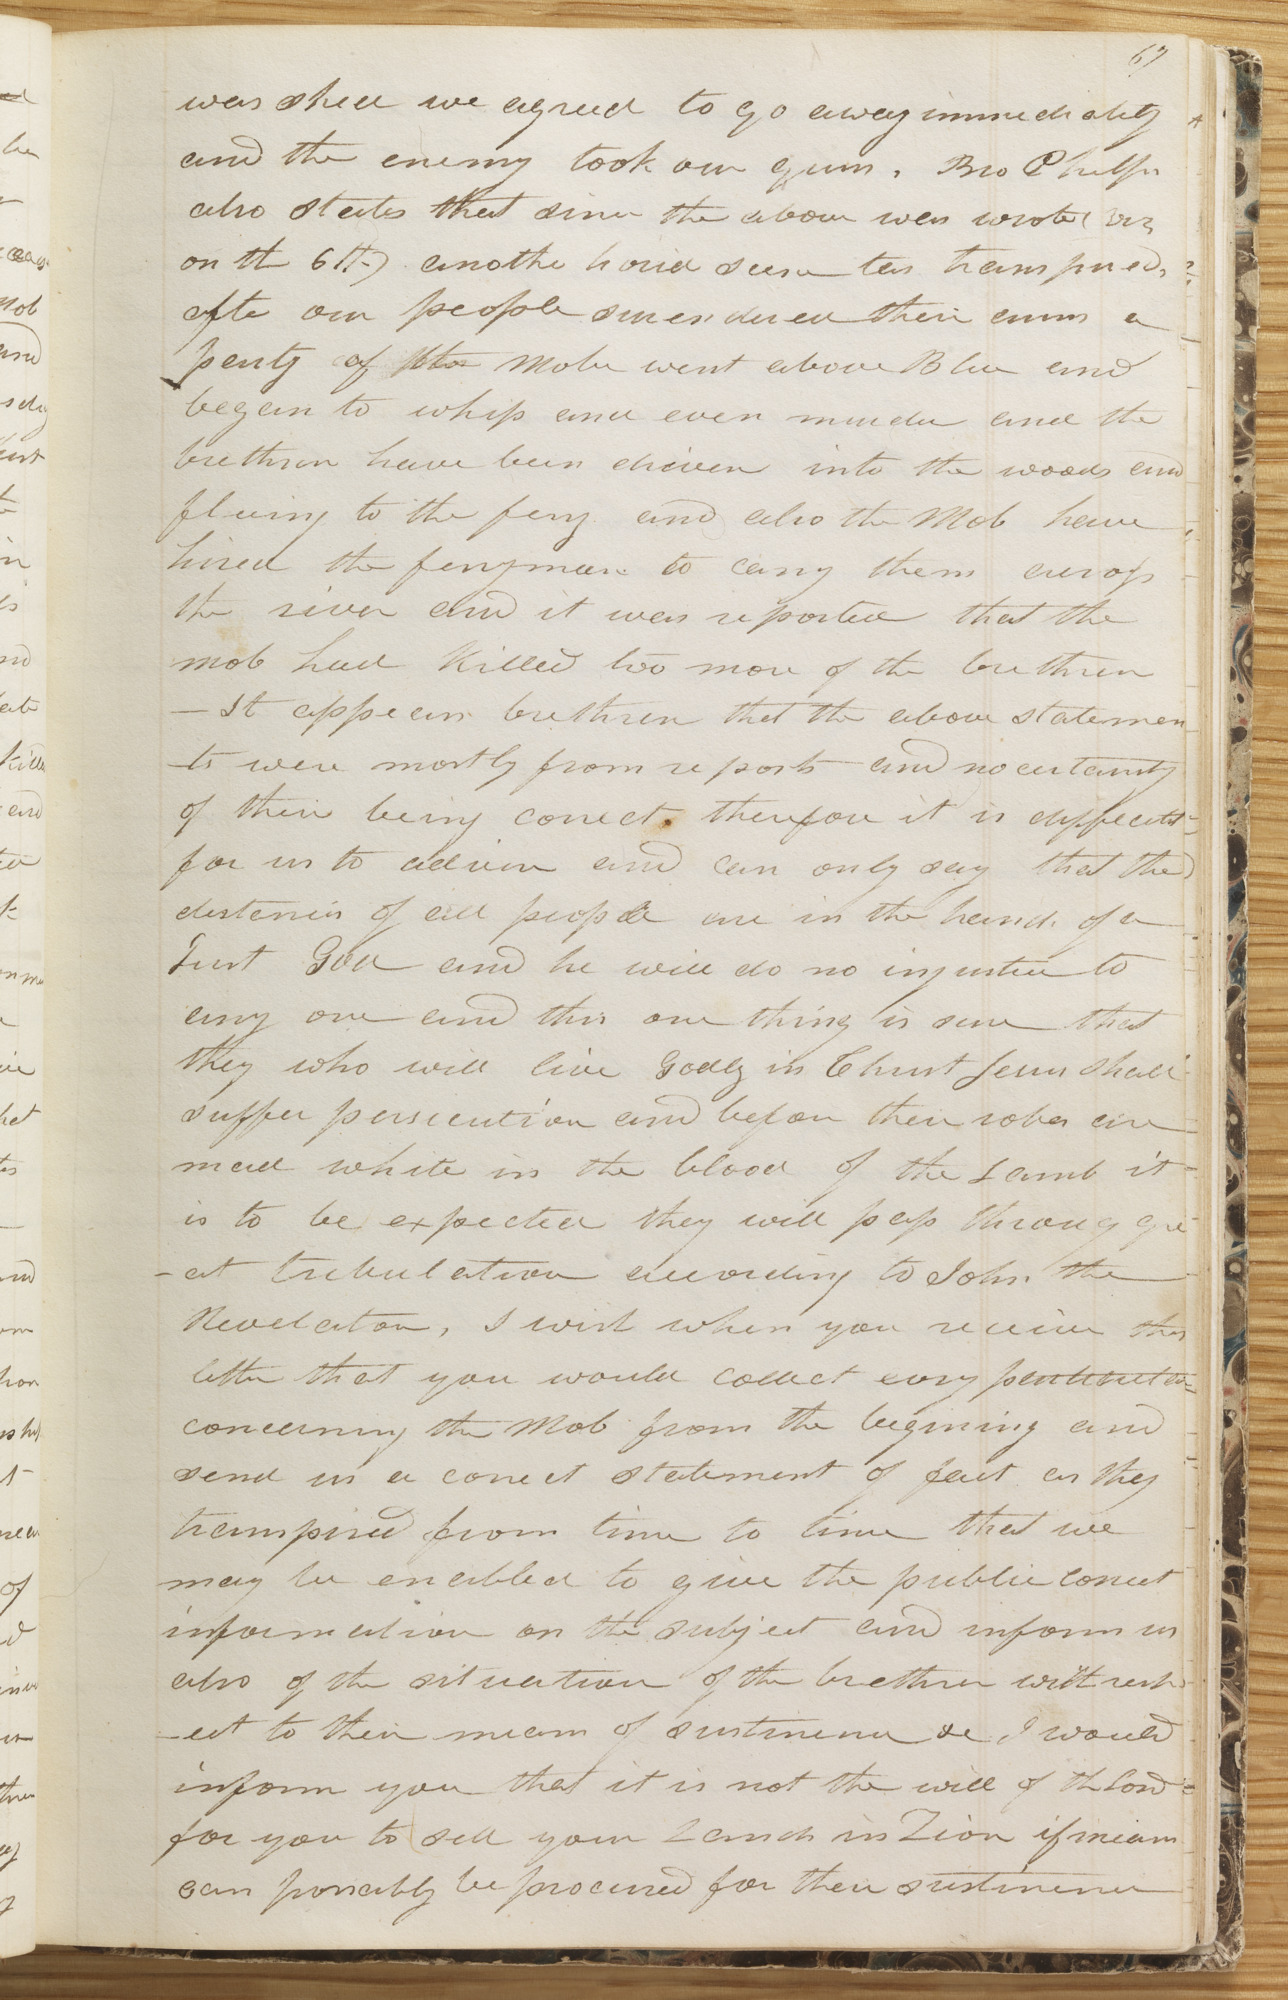 67
was shed we agreed to go away immediately
and the enemy took our guns, Bro Phelps
also states that since the above was wrote (viz
on th 6th) anothe horid scene has transpired,
afte our people surrendered their arms a
party of the Mobe went above Blue and
began to whip and even murder and the
brethren have been driven into the woods and
fleeing to the ferry and also the Mob have
hired the ferryman to carry them across
the river and it was reported that the
mob had Killed two more of the brethren
— It appears brethren that the above statemen
-ts were mostly from reports and no certainty
of their being correct therefore it is difficult
for us to advise and can only say that the
destenies of all people are in the hands of a
Just God and he will do no injustice to
any one and this one thing is sure that
they who will live Godly in Christ Jesus shall
suffer persecution and before their robes are
mad white in the blood of the Lamb it
is to be expected they will pass throug gre
-at tribulation according to John the
Revelator, I wish when you receive this
letter that you would collect every particular
concerning the Mob from the begining and
send us a correct statement of fact as they
transpired from time to time that we
may be enabled to give the public correct
information on the subject and inform us
also of the situation of the brethren with resp
-ect to their means of sustinence &c I would
inform you that it is not the will of th Lord
for you to sell your Lands in Zion if means
can possably be procured for their sustinence